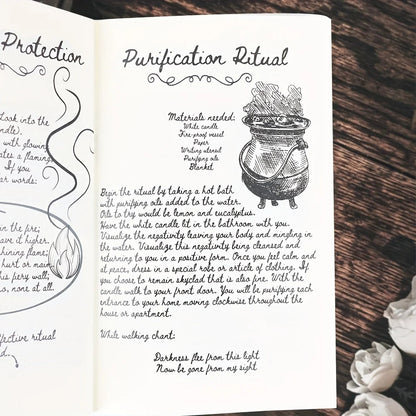 Protection
Look into the
candle).
with glowing
ates a flaming
If you
er words:
in the fire;
ave it higher.
hining flame;
hurt or maim.
his fiery wall;
o, none at all.
ffective ritual
d.
Purification Ritual
Materials needed:
White candle
Fire-proof vessel
Paper
Writing utensil
Purifying oils
Blanket
Begin the ritual by taking a hot bath
with purifying oils added to the water.
Oils to try would be lemon and eucalyptus.
Have the white candle lit in the bathroom with you.
Visualize the negativity leaving your body and mingling in
the water. Visualize this negativity being cleansed and
returning to you in a positive form. Once you feel calm and
at peace, dress in a special robe or article of clothing. If
you choose to remain skyclad that is also fine. With the
candle walk to your front door. You will be purifying each
entrance to your home moving clockwise throughout the
house or apartment.
While walking chant:
Darkness flee from this light
Now be gone from my sight